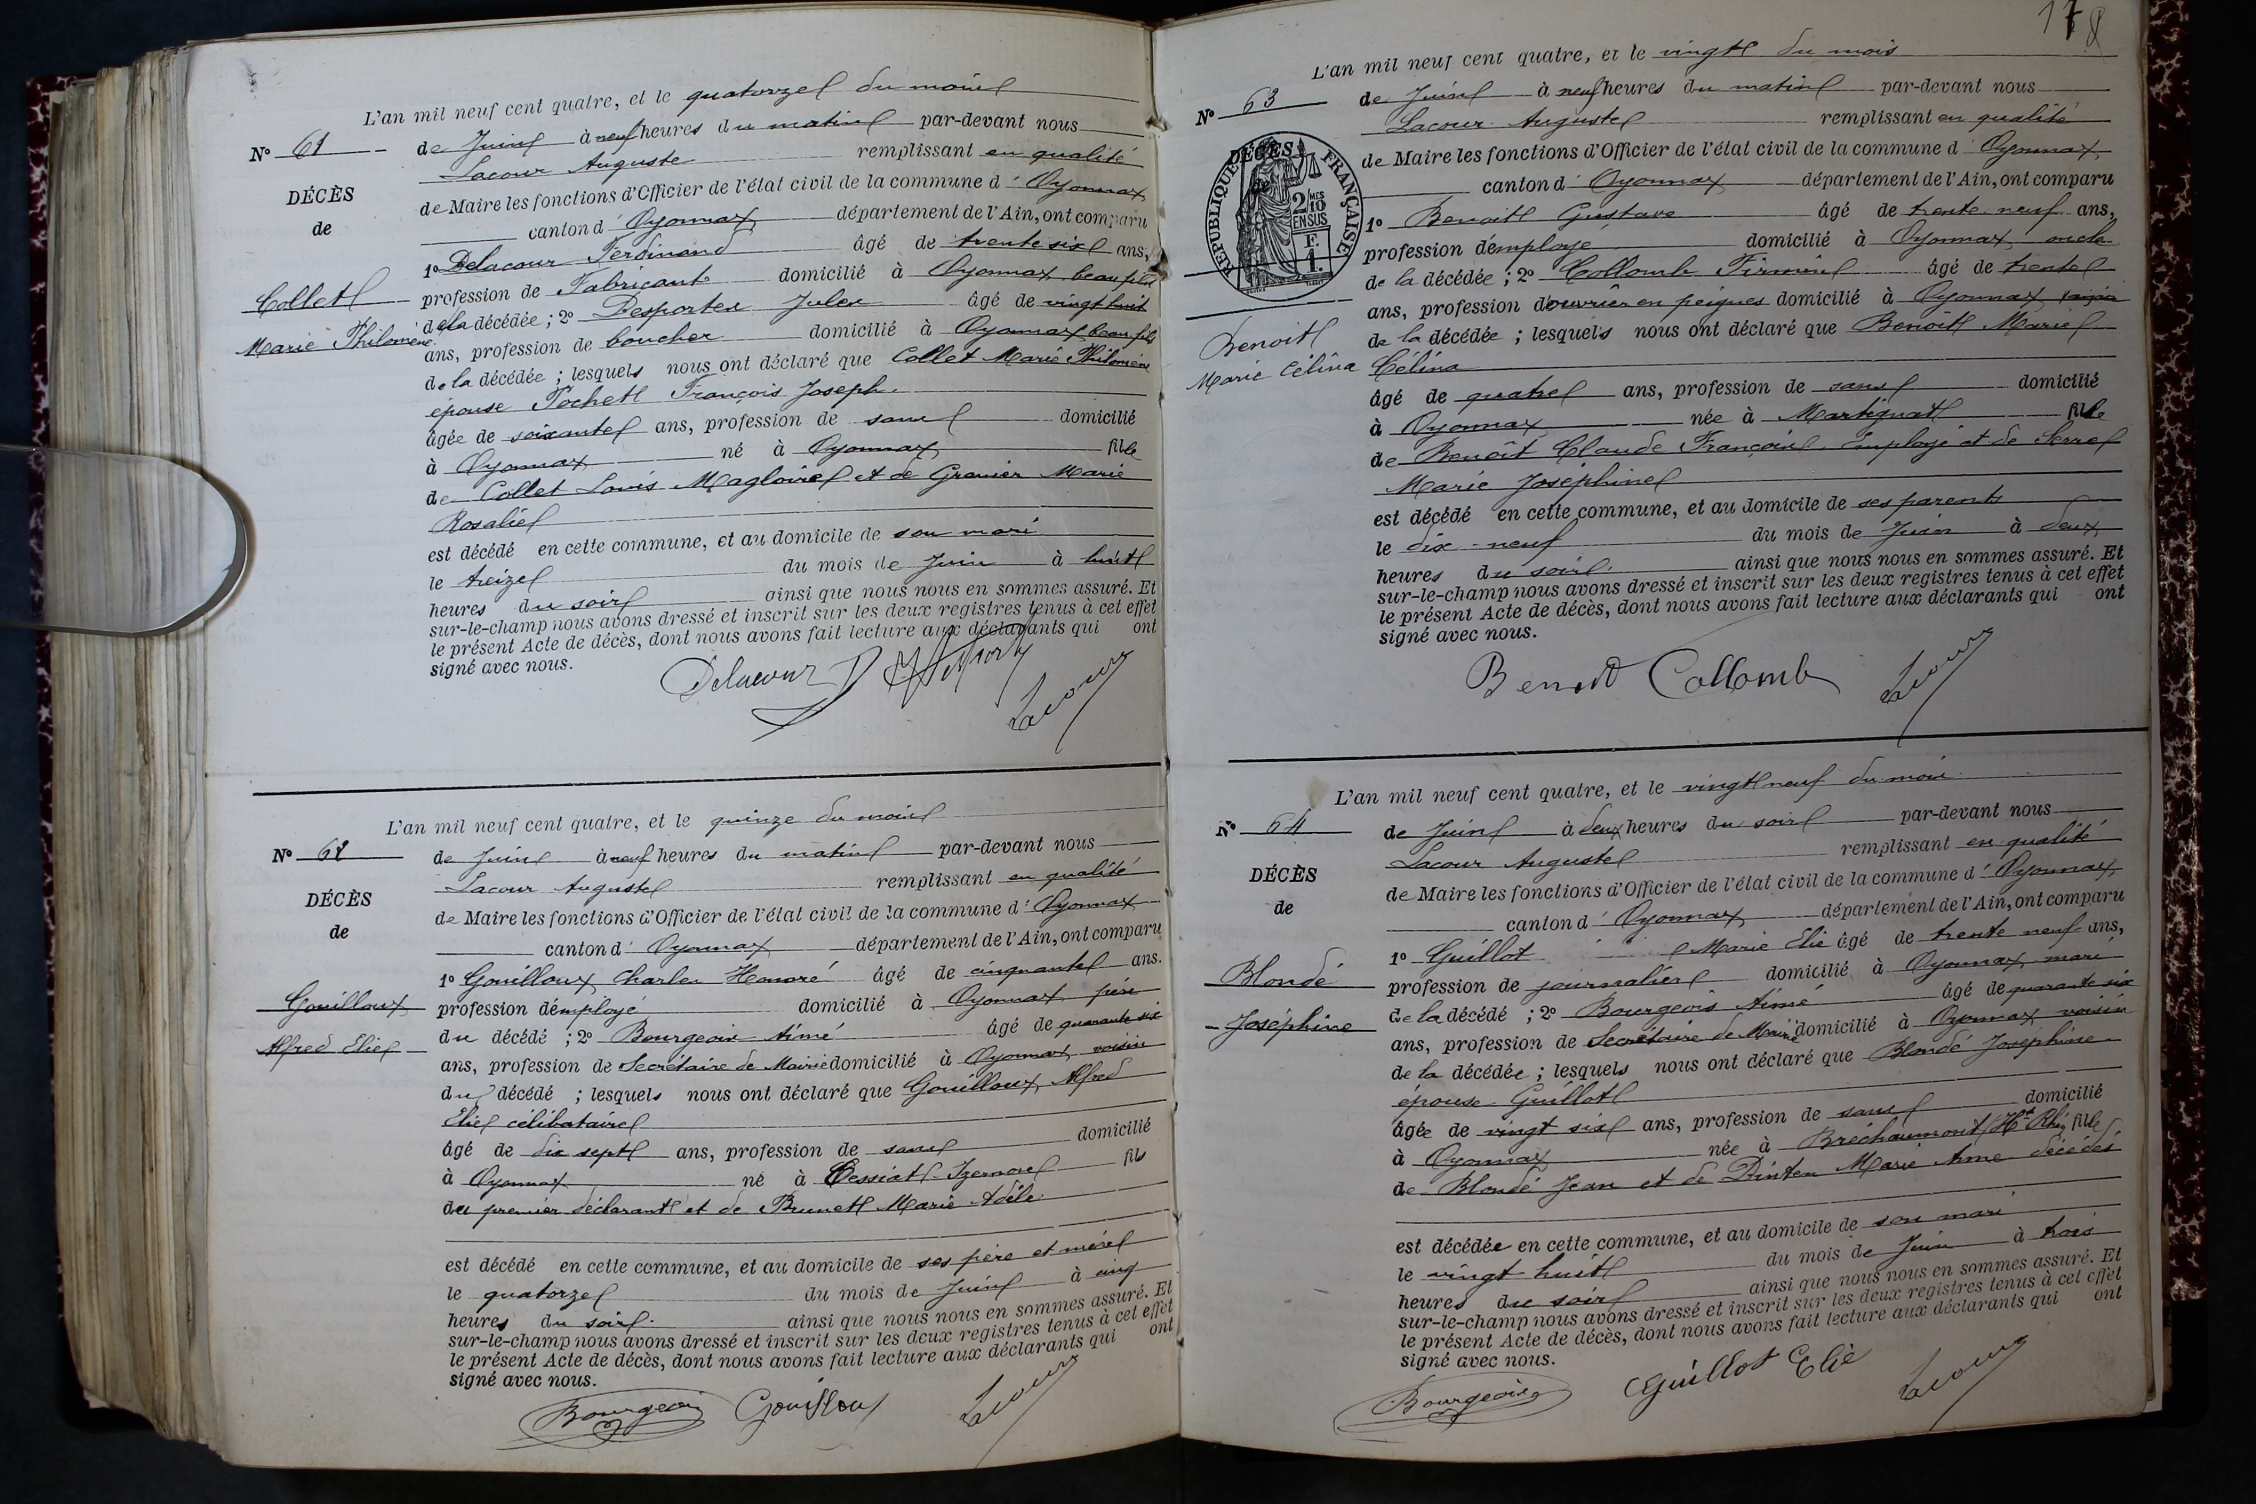 L'an mil neuf cent quatre, et le quatorze du mois
N° 61
de Juin à neuf heures du matin par-devant nous
Lacour Auguste remplissant en qualité
DÉCÈS
de Maire les fonctions d'Officier de l'état civil de la commune d'Oyonnax
de
canton d'Oyonnax département de l'Ain, ont comparu
1° Delacour Ferdinand âgé de trente six ans,
Collet
profession de Fabricant domicilié à Oyonnax beau fils
de la décédée ; 2° Desportes Jules âgé de vingt huit
Marie Philomène
ans, profession de boucher domicilié à Oyonnax beau fils
de la décédée ; lesquels nous ont déclaré que Collet Marie Philomène
épouse Pochet François Joseph
âgée de soixante ans, profession de sans domicilié
à Oyonnax né à Oyonnax fille
de Collet Louis Magloire et de Granier Marie
Rosalie
est décédé en cette commune, et au domicile de son mari
le treize du mois de Juin à huit
heures du soir ainsi que nous nous en sommes assuré. Et
sur-le-champ nous avons dressé et inscrit sur les deux registres tenus à cet effet
le présent Acte de décès, dont nous avons fait lecture aux déclarants qui ont
signé avec nous.
Delacour Lacour
L'an mil neuf cent quatre, et le quinze du mois
N° 62
de Juin à neuf heures du matin par-devant nous
Lacour Auguste remplissant en qualité
DÉCÈS
de Maire les fonctions d'Officier de l'état civil de la commune d'Oyonnax
de
canton d'Oyonnax département de l'Ain, ont comparu
1° Gouilloux Charles Honoré âgé de cinquante ans.
Gouilloux
profession d'employé domicilié à Oyonnax père
du décédé ; 2° Bourgeois Aimé âgé de quarante six
Alfred Elie
ans, profession de Secrétaire de Mairie domicilié à Oyonnax voisin
du décédé ; lesquels nous ont déclaré que Gouilloux Alfred
Elie célibataire
âgé de dix sept ans, profession de sans domicilié
à Oyonnax né à Cessiat-Izernore fils
du premier déclarant et de Brunet Marie Adèle
est décédé en cette commune, et au domicile de ses père et mère
le quatorze du mois de Juin à cinq
heures du soir ainsi que nous nous en sommes assuré. Et
sur-le-champ nous avons dressé et inscrit sur les deux registres tenus à cet effet
le présent Acte de décès, dont nous avons fait lecture aux déclarants qui ont
signé avec nous.
Bourgeois Gouilloux Lacour
17
L'an mil neuf cent quatre, et le vingt du mois
N° 63
de Juin à neuf heures du matin par-devant nous
Lacour Auguste remplissant en qualité
DÉCÈS
de
RÉPUBLIQUE FRANÇAISE
2 MES 10 EN SUS
F. 1.
de Maire les fonctions d'Officier de l'état civil de la commune d'Oyonnax
canton d'Oyonnax département de l'Ain, ont comparu
1° Benoit Gustave âgé de trente neuf ans,
profession d'employé domicilié à Oyonnax oncle
de la décédée ; 2° Collomb Firmin âgé de trente
ans, profession d'ouvrier en peignes domicilié à Oyonnax voisin
Benoit
de la décédée ; lesquels nous ont déclaré que Benoît Marie
Marie Célina
Célina
âgé de quatre ans, profession de sans domicilié
à Oyonnax née à Martignat fille
de Benoît Claude François employé et de Serre
Marie Joséphine
est décédé en cette commune, et au domicile de ses parents
le dix-neuf du mois de Juin à deux
heures du soir ainsi que nous nous en sommes assuré. Et
sur-le-champ nous avons dressé et inscrit sur les deux registres tenus à cet effet
le présent Acte de décès, dont nous avons fait lecture aux déclarants qui ont
signé avec nous.
Benoit Collomb Lacour
L'an mil neuf cent quatre, et le vingt neuf du mois
N° 64
de Juin à deux heures du soir par-devant nous
Lacour Auguste remplissant en qualité
DÉCÈS
de Maire les fonctions d'Officier de l'état civil de la commune d'Oyonnax
de
canton d'Oyonnax département de l'Ain, ont comparu
1° Guillot Marie Elie âgé de trente neuf ans,
Blondé
profession de journalier domicilié à Oyonnax mari
de la décédé ; 2° Bourgeois Aimé âgé de quarante six
Joséphine
ans, profession de Secrétaire de Mairie domicilié à Oyonnax voisin
de la décédée ; lesquels nous ont déclaré que Blondé Joséphine
épouse Guillot
âgée de vingt six ans, profession de sans domicilié
à Oyonnax née à Bréchaumont (Ht Rhin) fille
de Blondé Jean et de Dinten Marie Anne décédés
est décédée en cette commune, et au domicile de son mari
le vingt huit du mois de Juin à trois
heures du soir ainsi que nous nous en sommes assuré. Et
sur-le-champ nous avons dressé et inscrit sur les deux registres tenus à cet effet
le présent Acte de décès, dont nous avons fait lecture aux déclarants qui ont
signé avec nous.
Bourgeois Guillot Elie Lacour